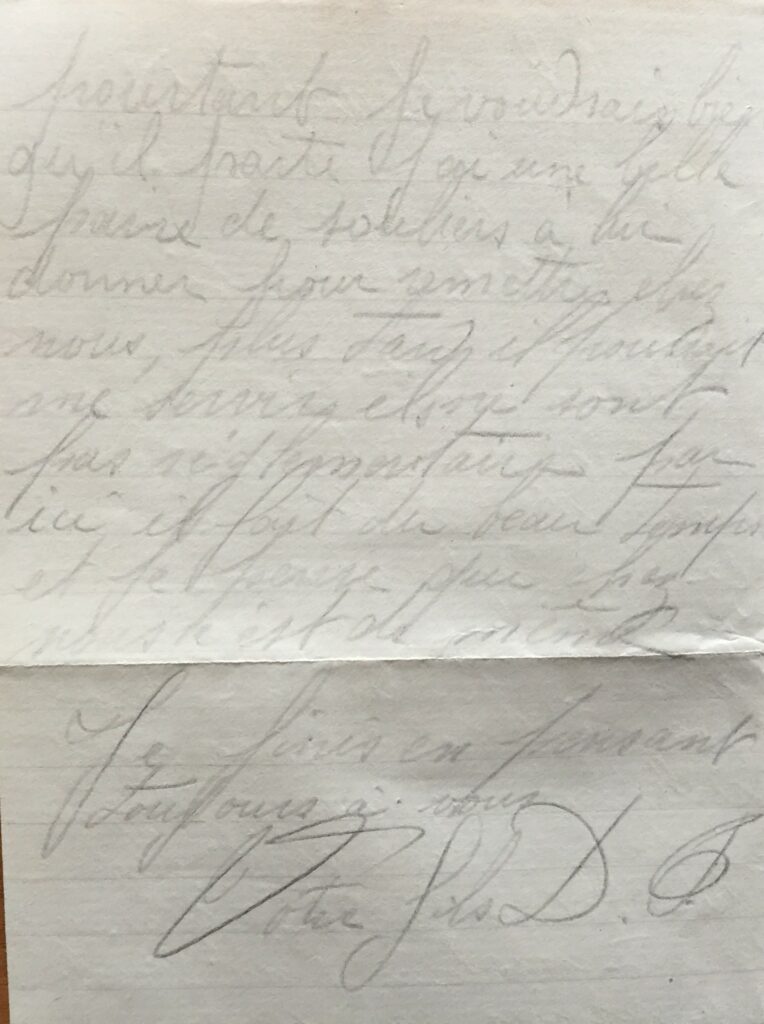 pourtant Je voudrais bien
qu'il parte J'ai une belle
paire de souliers à lui
donner pour remettre chez
nous, plus tard il pourrait
me servir ils ne sont
pas réglementaire par
ici il fait du beau temps
et je pense que chez
nous c'est de même
Je finis en pensant
toujours à vous
Votre fils D. P.